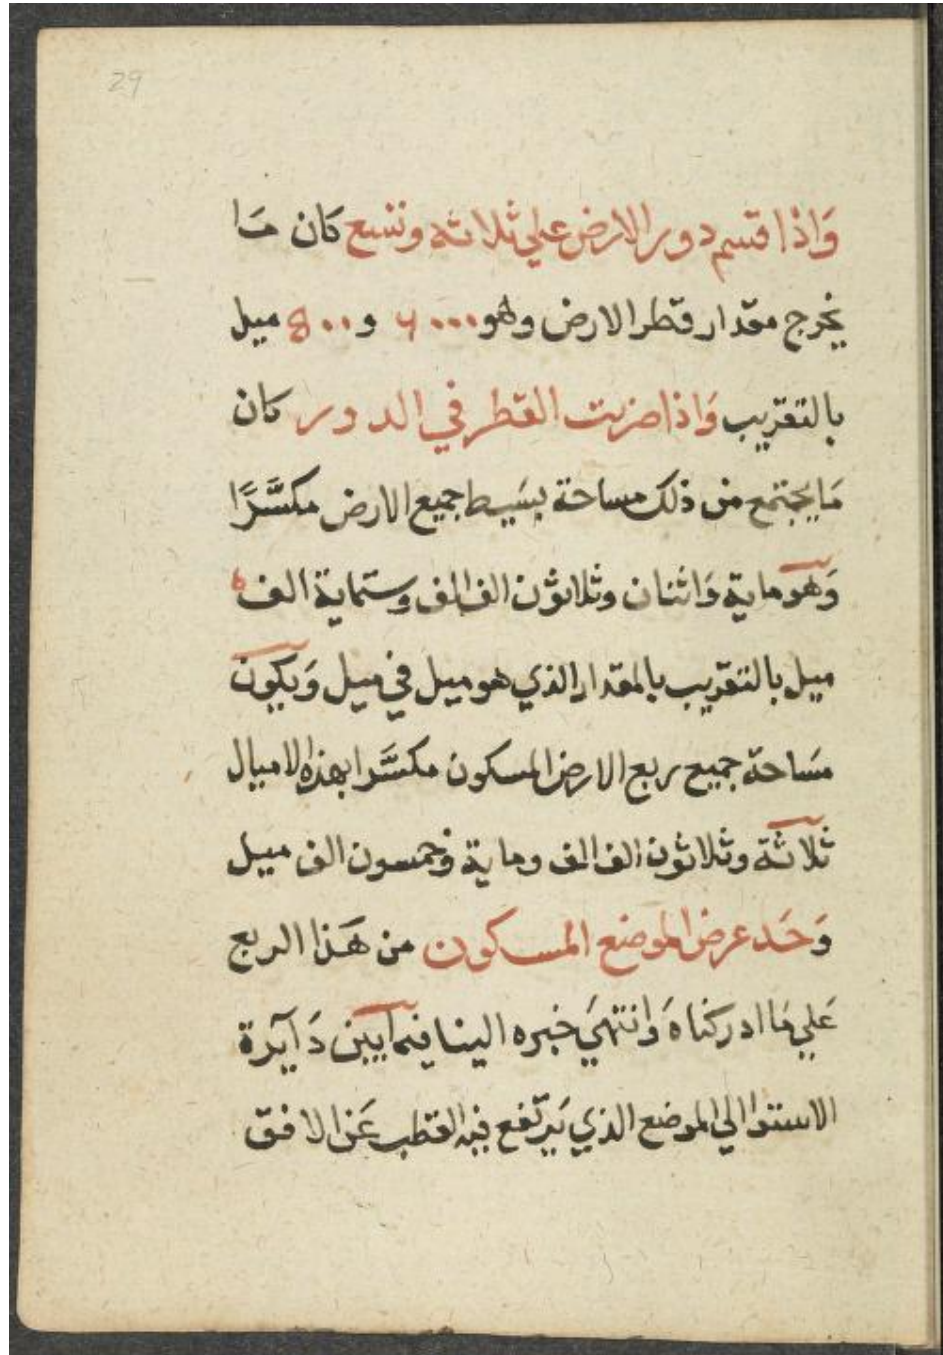 29
وَاذا قسم دور الارض علي ثلاثة وتسع كان مَا
يخرج مقدار قطر الارض وهو ٦٠٠٠ و ٥٠٠ ميل
بالتقريب وَاذا ضربت القطر في الدور كان
مَا يجتمع من ذلك مساحة بسَيط جميع الارض مكسَّرًا
وَهو ماية وَاثنان وثلاثون الف الف وستماية الف
ميل بالتقريب بالمقدار الذي هو ميل في ميل وَيكون
مسَاحة جميع ربع الارض المسكون مكسَّرا بهذه الاميال
ثلاثة وثلاثون الف الف وماية وخمسون الف ميل
وَحَد عرض الموضع المسكون من هَذا الربع
عَلي مَا ادركناهَ وَانتهيَ خبره الينا فيما بين دَايرة
الاستوا الي الموضع الذي يَرتفع فيه القطب عَن الافق